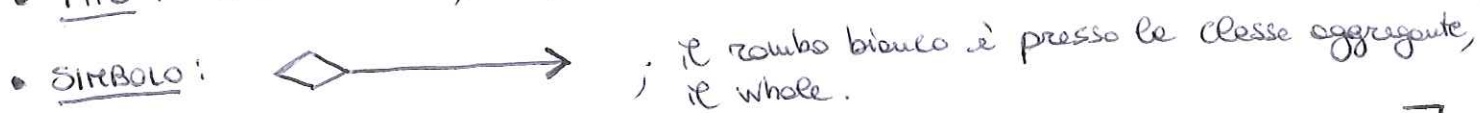 • SIMBOLO: ; il rombo bianco è presso la classe aggregante,
il whole.